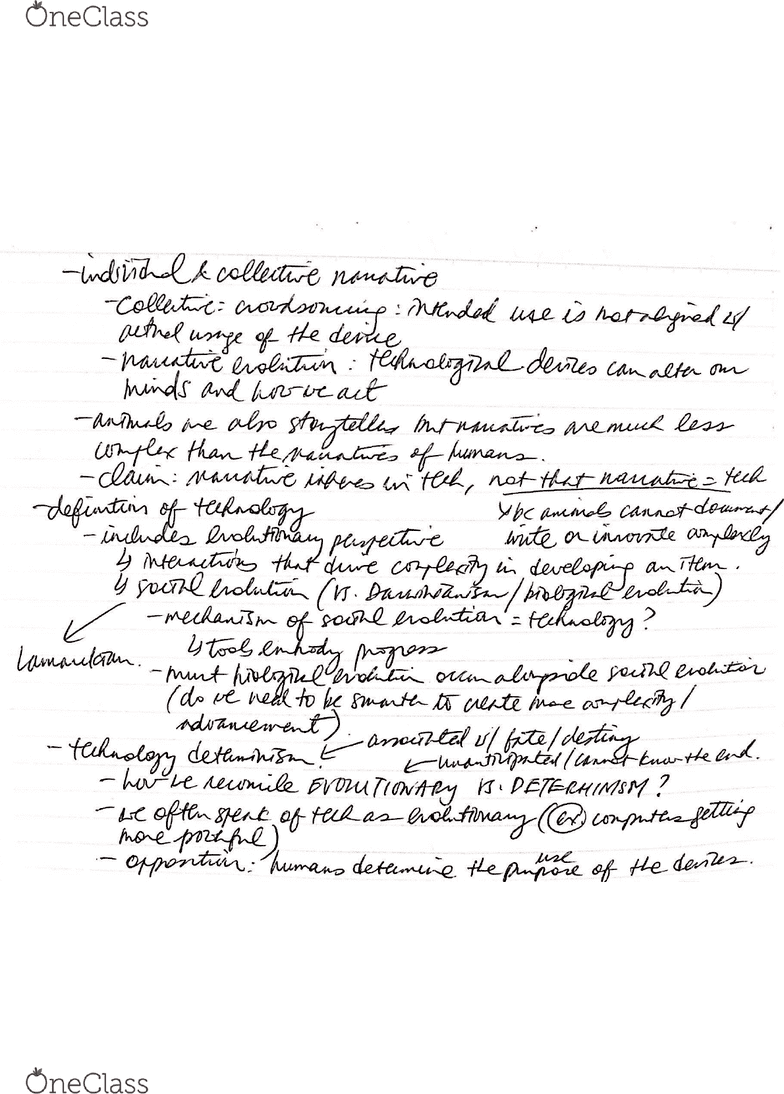 OneClass
-individual & collective narrative
-collective = crowdsourcing : intended use is not aligned w/
actual usage of the device
-narrative evolution : technological devices can alter our
minds and how we act
-animals are also storytellers but narratives are much less
complex than the narratives of humans.
-claim: narrative inheres in tech, not that narrative = tech
-definition of technology
↳bc animals cannot document/
write or innovate complexly
-includes evolutionary perspective
↳ interactions that drive complexity in developing an item.
↳ social evolution (vs. Darwinianism/biological evolution)
-mechanism of social evolution = technology?
↳tools embody progress
Lamarckian.
-must biological evolution occur alongside social evolution
(do we need to be smarter to create more complexity/
advancement)
-technology determinism?
← associated w/ fate/destiny
← unanticipated/cannot know the end.
-how we reconcile EVOLUTIONARY VS. DETERMINISM?
-we often speak of tech as evolutionary (ex) computers getting
more powerful)
- opposition: humans determine the use purpose of the devices.
OneClass